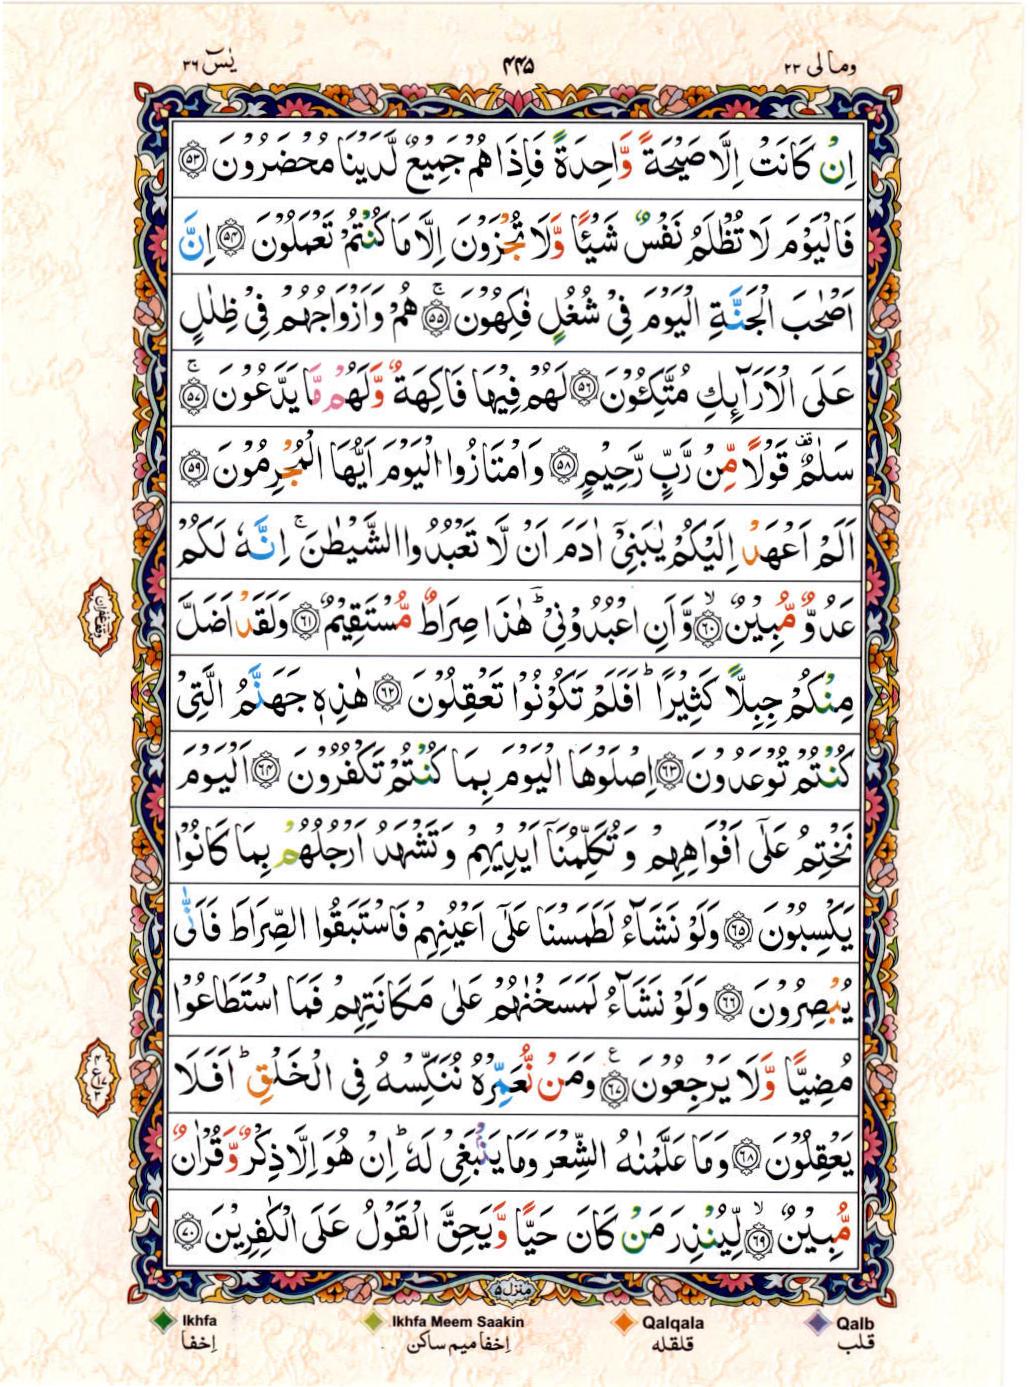 یٰسٓ ۳۶
۴۴۵
ومالی ۲۳
اِنْ كَانَتْ اِلَّا صَیْحَةً وَّاحِدَةً فَاِذَا هُمْ جَمِیْعٌ لَّدَیْنَا مُحْضَرُوْنَ ۝۵۳
فَالْیَوْمَ لَا تُظْلَمُ نَفْسٌ شَیْـًٔا وَّلَا تُجْزَوْنَ اِلَّا مَا كُنْتُمْ تَعْمَلُوْنَ ۝۵۴ اِنَّ
اَصْحٰبَ الْجَنَّةِ الْیَوْمَ فِیْ شُغُلٍ فٰكِهُوْنَ ۝۵۵ۚ هُمْ وَاَزْوَاجُهُمْ فِیْ ظِلٰلٍ
عَلَی الْاَرَآىِٕكِ مُتَّكِـُٔوْنَ ۝۵۶ لَهُمْ فِیْهَا فَاكِهَةٌ وَّلَهُمْ مَّا یَدَّعُوْنَ ۝۵۷ۚ
سَلٰمٌ ۫ قَوْلًا مِّنْ رَّبٍّ رَّحِیْمٍ ۝۵۸ وَامْتَازُوا الْیَوْمَ اَیُّهَا الْمُجْرِمُوْنَ ۝۵۹
اَلَمْ اَعْهَدْ اِلَیْكُمْ یٰبَنِیْۤ اٰدَمَ اَنْ لَّا تَعْبُدُوا الشَّیْطٰنَ ۚ اِنَّهٗ لَكُمْ
عَدُوٌّ مُّبِیْنٌ ۝۶۰ۙ وَّاَنِ اعْبُدُوْنِیْ ؔؕ هٰذَا صِرَاطٌ مُّسْتَقِیْمٌ ۝۶۱ وَلَقَدْ اَضَلَّ
مِنْكُمْ جِبِلًّا كَثِیْرًا ؕ اَفَلَمْ تَكُوْنُوْا تَعْقِلُوْنَ ۝۶۲ هٰذِهٖ جَهَنَّمُ الَّتِیْ
كُنْتُمْ تُوْعَدُوْنَ ۝۶۳ اِصْلَوْهَا الْیَوْمَ بِمَا كُنْتُمْ تَكْفُرُوْنَ ۝۶۴ اَلْیَوْمَ
نَخْتِمُ عَلٰۤی اَفْوَاهِهِمْ وَتُكَلِّمُنَاۤ اَیْدِیْهِمْ وَتَشْهَدُ اَرْجُلُهُمْ بِمَا كَانُوْا
یَكْسِبُوْنَ ۝۶۵ وَلَوْ نَشَآءُ لَطَمَسْنَا عَلٰۤی اَعْیُنِهِمْ فَاسْتَبَقُوا الصِّرَاطَ فَاَنّٰی
یُبْصِرُوْنَ ۝۶۶ وَلَوْ نَشَآءُ لَمَسَخْنٰهُمْ عَلٰی مَكَانَتِهِمْ فَمَا اسْتَطَاعُوْا
مُضِیًّا وَّلَا یَرْجِعُوْنَ ۝۶۷ۧ وَمَنْ نُّعَمِّرْهُ نُنَكِّسْهُ فِی الْخَلْقِ ؕ اَفَلَا
یَعْقِلُوْنَ ۝۶۸ وَمَا عَلَّمْنٰهُ الشِّعْرَ وَمَا یَنْۢبَغِیْ لَهٗ ؕ اِنْ هُوَ اِلَّا ذِكْرٌ وَّقُرْاٰنٌ
مُّبِیْنٌ ۝۶۹ۙ لِّیُنْذِرَ مَنْ كَانَ حَیًّا وَّیَحِقَّ الْقَوْلُ عَلَی الْكٰفِرِیْنَ ۝۷۰
منزل ۵
Ikhfa
Ikhfa Meem Saakin
Qalqala
Qalb
اِخفا
اِخفا میم ساکن
قلقله
قلب